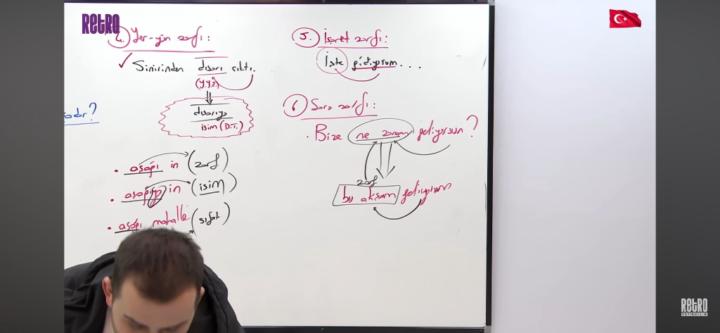 RETRO
4. Yer-yön zarfı:
✓ Sinirinden dışarı çıktı.
(YYZ)
dışarıya
isim (D.T.)
• aşağı in (zarf)
• aşağıya in (isim)
• aşağı mahalle (sıfat)
5. İşaret zarfı:
İşte gidiyorum...
6. Soru zarfı:
• Bize ne zaman geliyorsun?
zarf
bu akşam geliyorum
RETRO